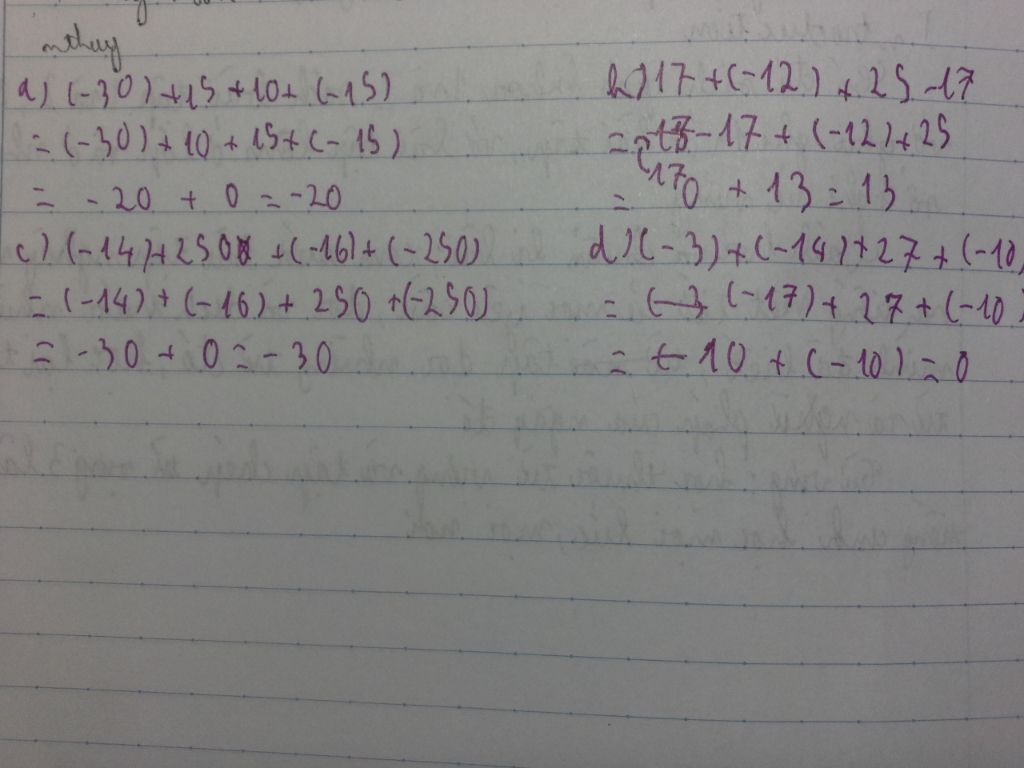 nthuy
a) (-30) + 15 + 10 + (-15)
= (-30) + 10 + 15 + (-15)
= -20 + 0 = -20
b) 17 + (-12) + 25 - 17
= 17 - 17 + (-12) + 25
= 0 + 13 = 13
c) (-14) + 250 + (-16) + (-250)
= (-14) + (-16) + 250 + (-250)
= -30 + 0 = -30
d) (-3) + (-14) + 27 + (-10)
= (-17) + 27 + (-10)
= 10 + (-10) = 0